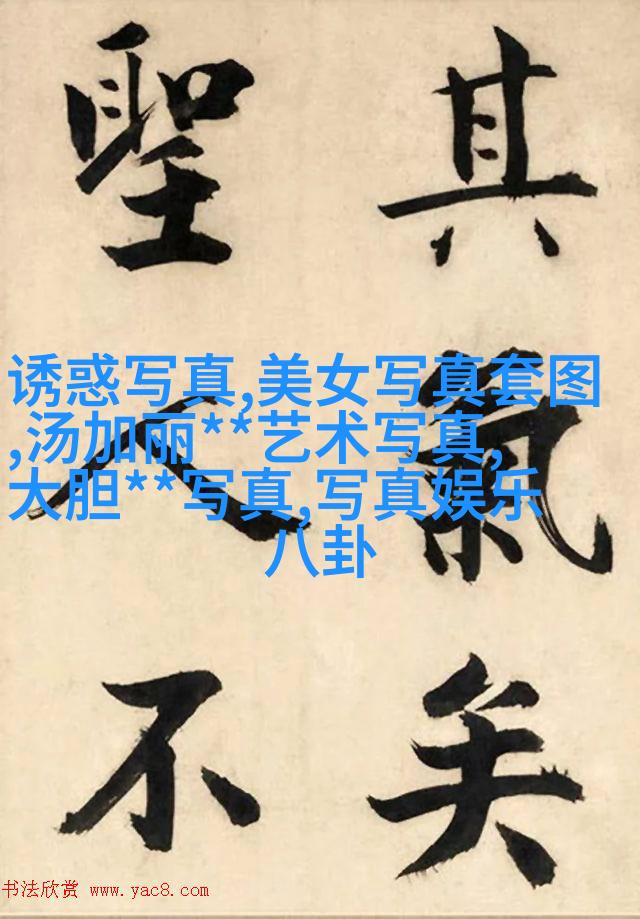 其氣矣
聖人不
诱惑写真,美女写真套图
,汤加丽**艺术写真,
大胆**写真,写真娱乐
八卦
书法欣赏 www.yac8.com